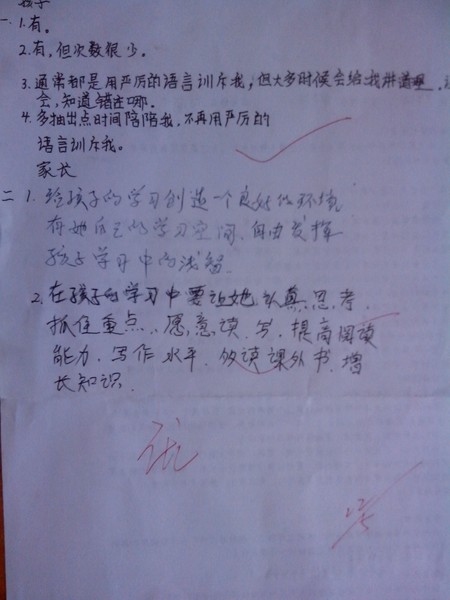 孩子
一.1.有。
2.有,但次数很少。
3.通常都是用严厉的语言训斥我,但大多时候会给我讲道理,
会,知道错在哪。
4.多抽出点时间陪陪我,不再用严厉的
语言训斥我。
家长
二 1.给孩子的学习创造一个良好的环境
有她自己的学习空间、自由发挥
孩子学习中的
2.在孩子的学习中要让她认真思考.
抓住重点、愿意读、写、提高阅读
能力、写作水平、多读课外书、增
长知识.
优